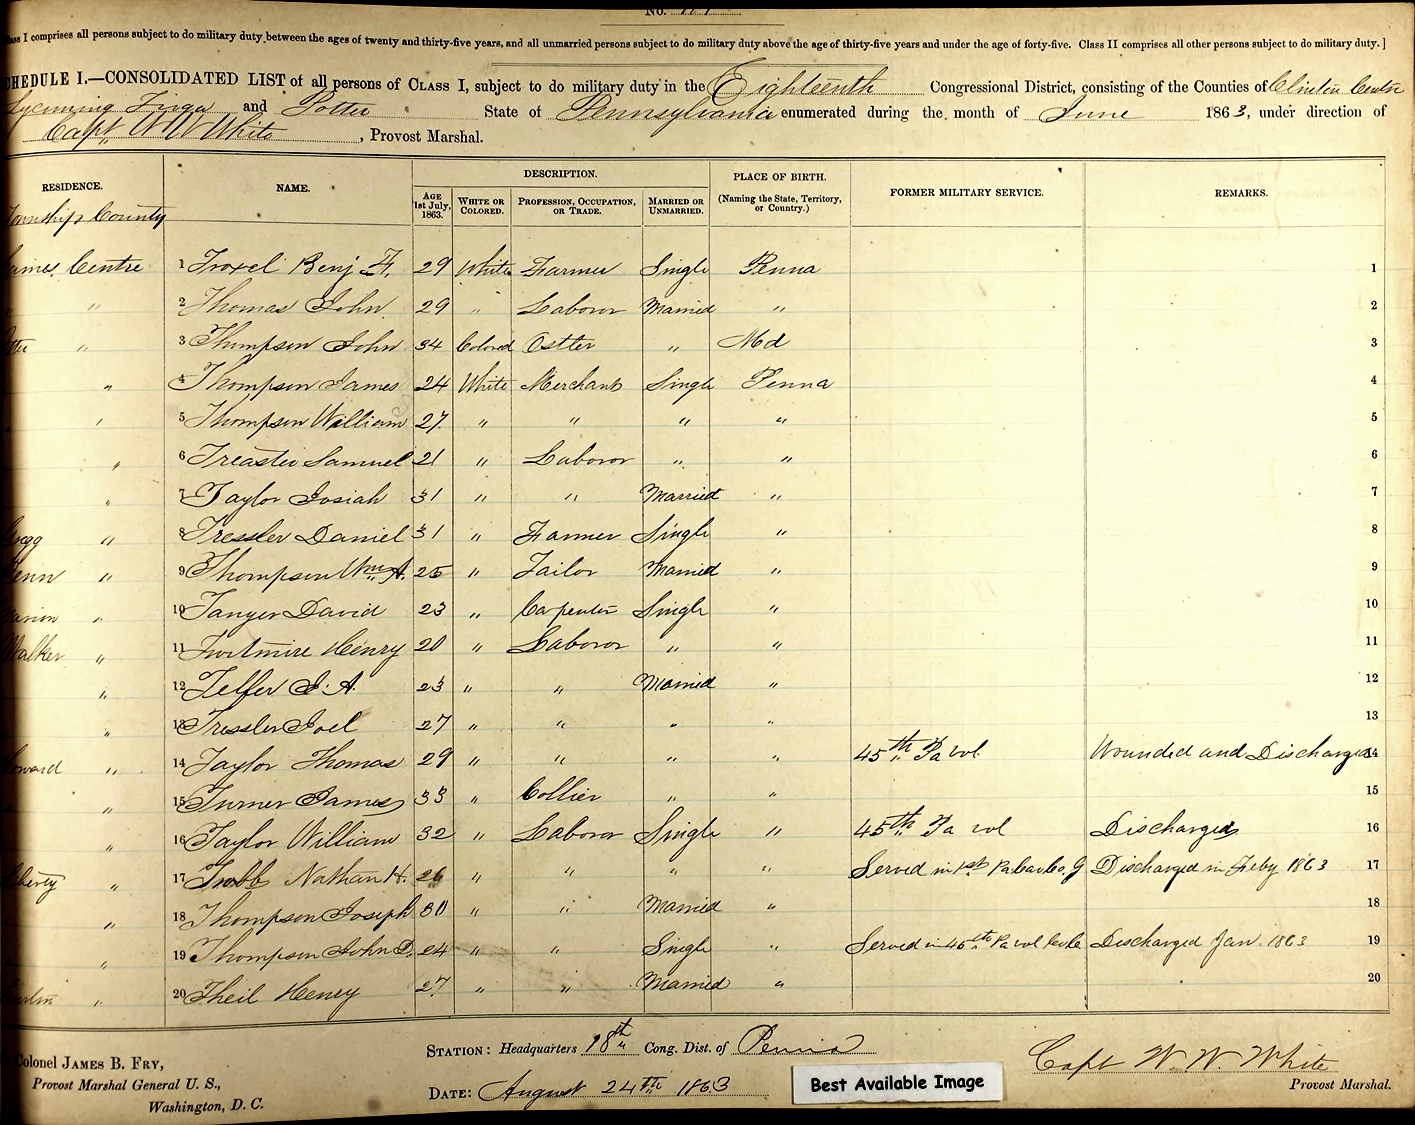 No.
Class I comprises all persons subject to do military duty between the ages of twenty and thirty-five years, and all unmarried persons subject to do military duty above the age of thirty-five years and under the age of forty-five. Class II comprises all other persons subject to do military duty.]
SCHEDULE I.—CONSOLIDATED LIST of all persons of CLASS I, subject to do military duty in the Eighteenth Congressional District, consisting of the Counties of Clinton Centre
Lycoming Tioga and Potter State of Pennsylvania enumerated during the month of June 1863, under direction of
Capt W W White, Provost Marshal.
RESIDENCE. NAME. DESCRIPTION. PLACE OF BIRTH. FORMER MILITARY SERVICE. REMARKS.
AGE 1st July, 1863. WHITE OR COLORED. PROFESSION, OCCUPATION, OR TRADE. MARRIED OR UNMARRIED. (Naming the State, Territory, or Country.)
Township & County
Haines Centre 1 Troxel Benj F. 29 White Farmer Single Penna 1
" 2 Thomas John 29 " Laboror Married " 2
Potter " 3 Thompson John 34 Colored Ostler " Md 3
" 4 Thompson James 24 White Merchant Single Penna 4
" 5 Thompson William 27 " " " " 5
" 6 Treaster Samuel 21 " Laboror " " 6
" 7 Taylor Josiah 31 " " Married " 7
Gregg " 8 Tressler Daniel 31 " Farmer Single " 8
Penn " 9 Thompson Wm A. 25 " Tailor Married " 9
Marion " 10 Tanyer David 23 " Carpenter Single " 10
Walker " 11 Henry 20 " Laboror " " 11
" 12 Telfer J. A. 23 " " Married " 12
" 13 Tressler Joel 27 " " " " 13
Howard " 14 Taylor Thomas 29 " " " " 45th Pa vol Wounded and Discharged 14
" " 15 Turner James 33 " Collier " " 15
" 16 Taylor William 32 " Laboror Single " 45th Pa vol Discharged 16
Liberty " 17 Nathan H. 26 " " " " Served in 1st Pa Cav Co, G Discharged in Feby 1863 17
" 18 Thompson Joseph 30 " " Married " 18
" 19 Thompson John D. 24 " " Single " Served in 45th Pa vol Discharged Jan. 1863 19
Curtin " 20 Theil Henry 27 " " Married " 20
Colonel JAMES B. FRY,
Provost Marshal General U. S.,
Washington, D. C.
STATION: Headquarters 18th Cong. Dist. of Penna
DATE: August 24th 1863
Best Available Image
Capt W. W. White
Provost Marshal.